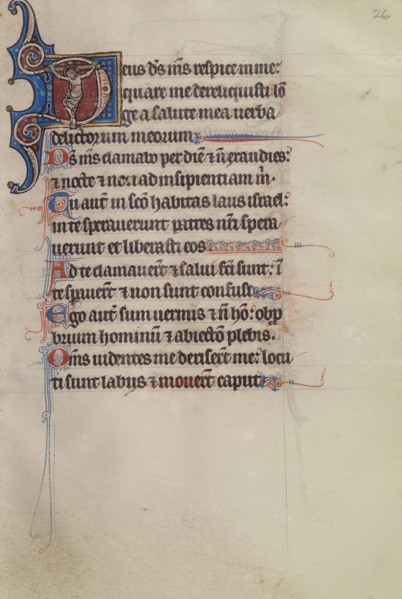 26
Deus ds ms respice in me:
quare me dereliquisti lō
ge a salute mea uerba
delictorum meorum
Ds ms clamabo per diē & ñ exaudies:
& nocte & non ad insipientiam m.
Tu autē in scō habitas laus israel:
in te sperauerunt patres nri spera
uerunt et liberasti eos
Ad te clamauert & salui fci sunt: ī
te spauert & non sunt confusi
Ego autē sum uermis & ñ hō: obp
brium hominū & abiectō plebis.
Oms uidentes me deriserт me: locu
ti sunt labijs & mouert caput